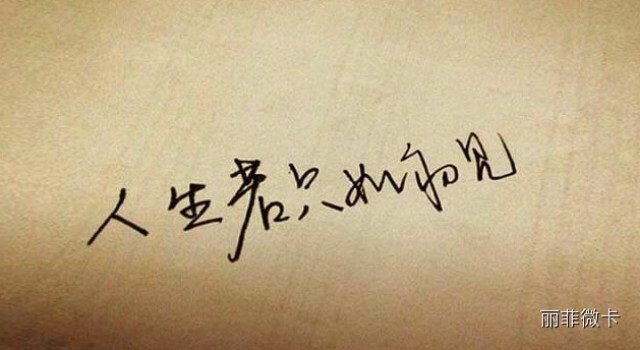 人生若只如初见
丽菲微卡